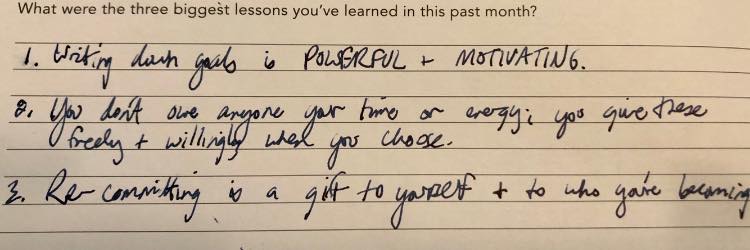 What were the three biggest lessons you've learned in this past month?
1. Writing down goals is POWERFUL + MOTIVATING.
2. You don't owe anyone your time or energy; you give these
freely + willingly when you choose.
3. Re-committing is a gift to yourself + to who you're becoming